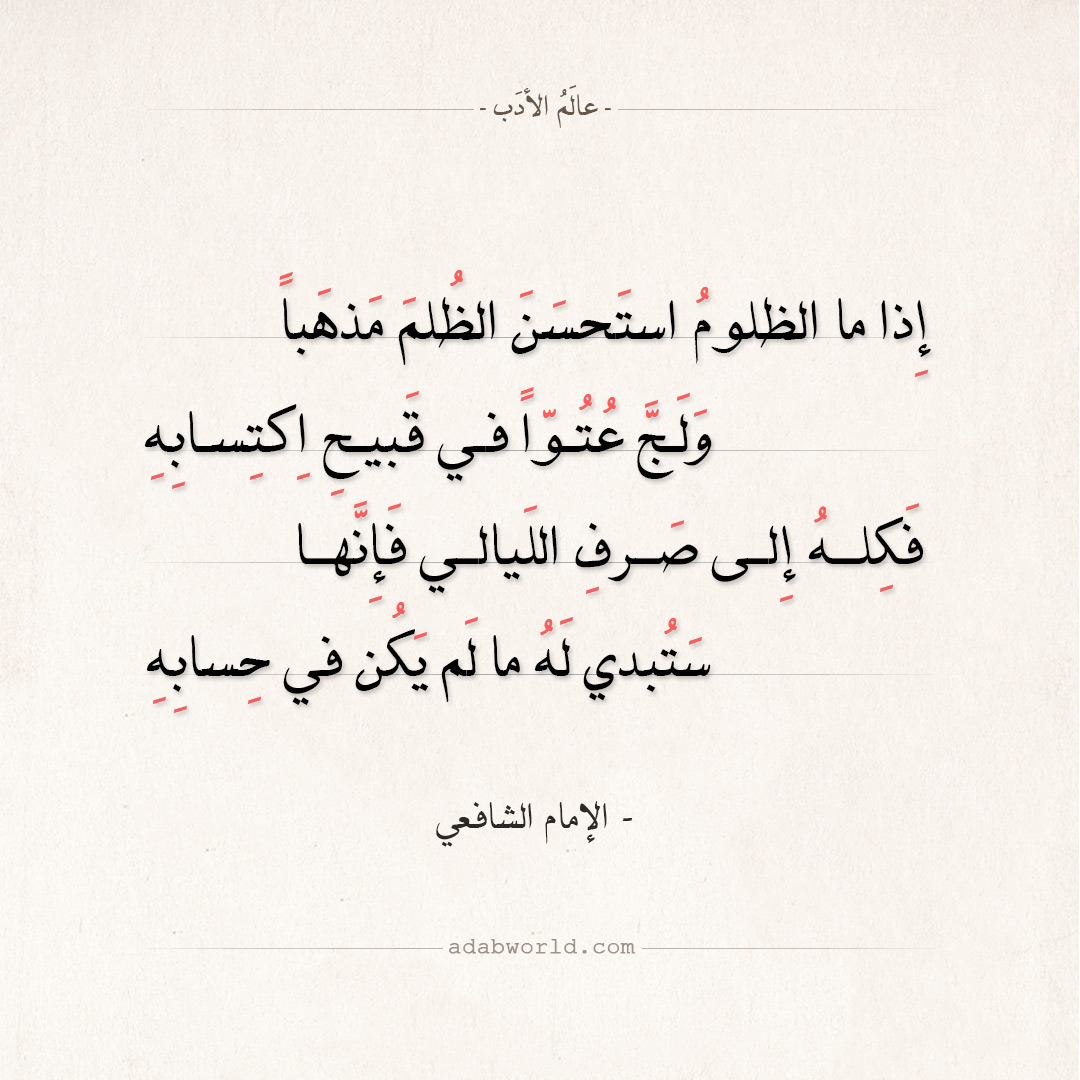 - عالَمُ الأدَب -
إِذا ما الظلومُ استَحسَنَ الظُلمَ مَذهَباً
وَلَجَّ عُتُوّاً في قَبيحِ اِكتِسابِهِ
فَكِلهُ إِلى صَرفِ اللَيالي فَإِنَّها
سَتُبدي لَهُ ما لَم يَكُن في حِسابِهِ
- الإمام الشافعي
adabworld.com